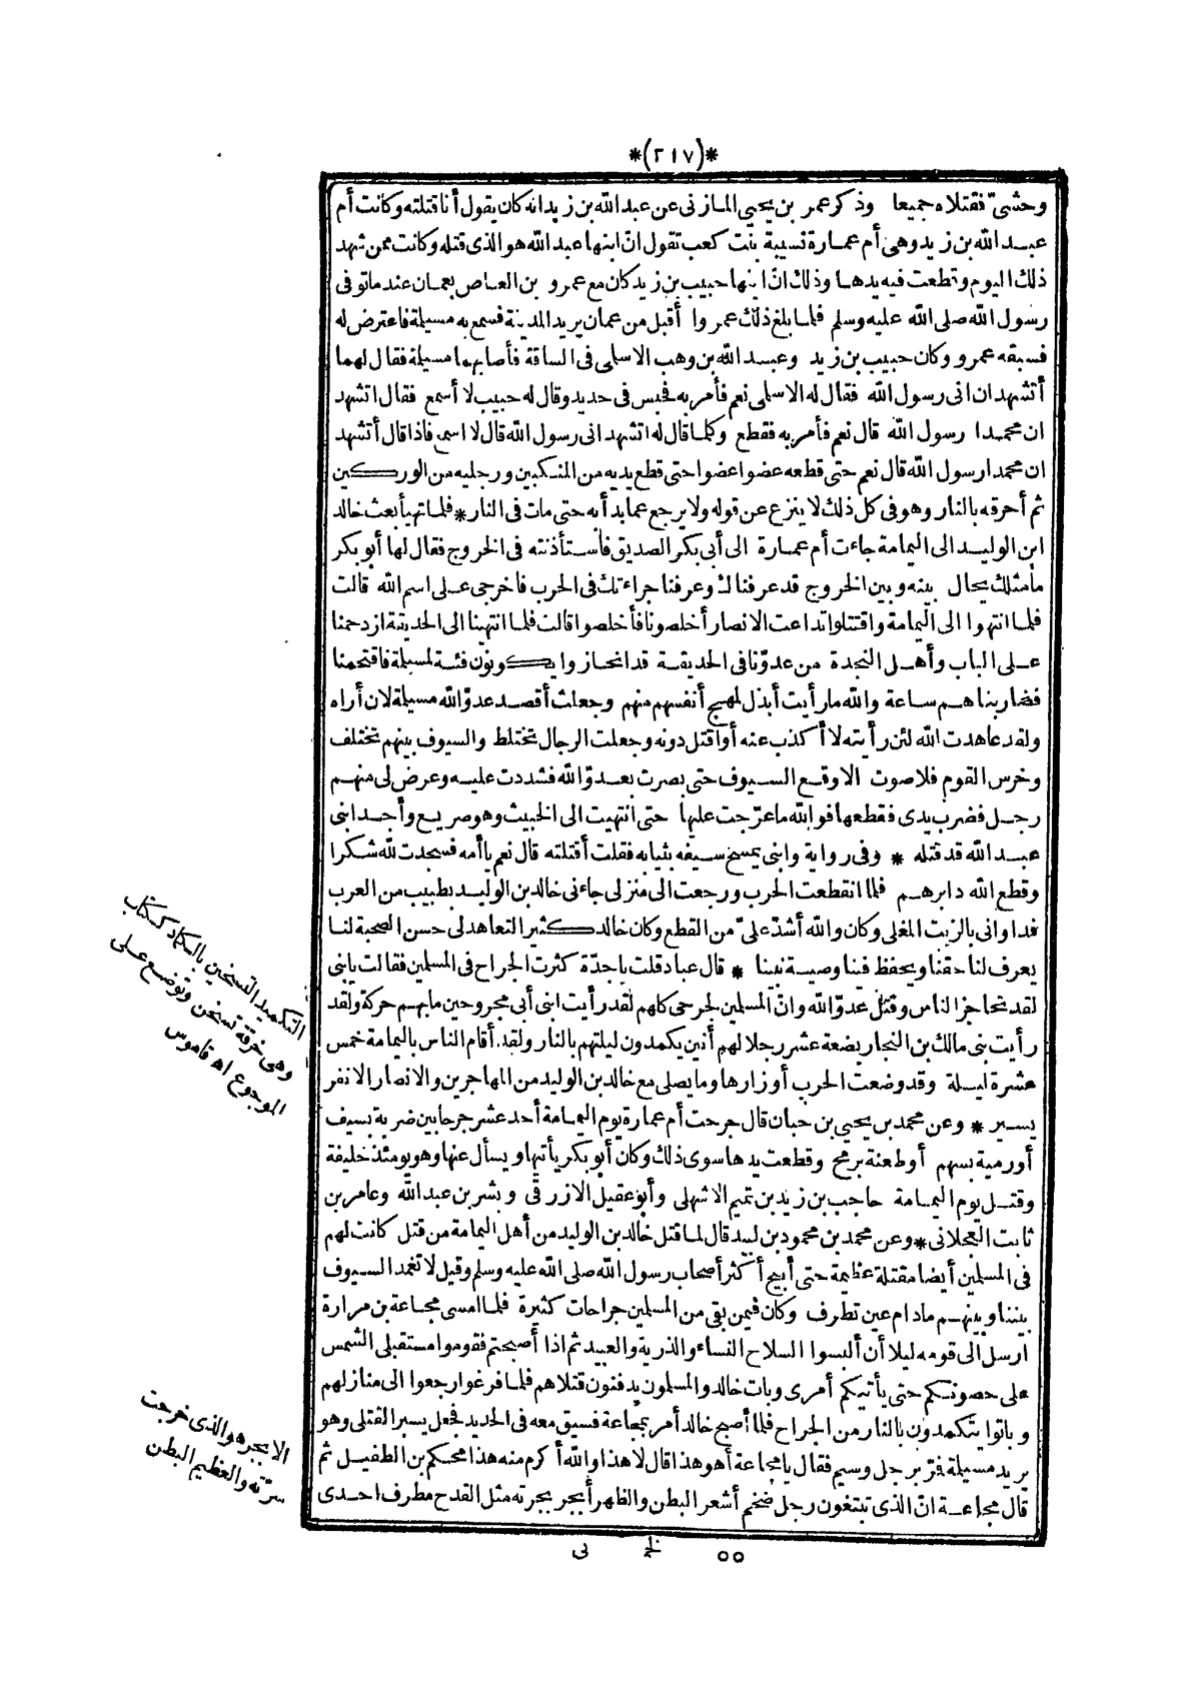 *(٢١٧)*
وحشىّ فقتلاه جميعا وذكر عمر بن يحيى المازنى عن عبدالله بن زيد انه كان يقول أنا قتلته وكانت أم
عبدالله بن زيد وهى أم عمارة نسيبة بنت كعب تقول انّ ابنها عبدالله هو الذى قتله وكانت ممن شهد
ذلك اليوم وقطعت فيه يدها وذلك انّ ابنها حبيب بن زيد كان مع عمرو بن العاص بعمان عند ما توفى
رسول الله صلى الله عليه وسلم فلما بلغ ذلك عمروا أقبل من عمان يريد المدينة فسمع به مسيلة فاعترض له
فسبقه عمرو وكان حبيب بن زيد وعبد الله بن وهب الاسلمى فى الساقة فأصابهما مسيلة فقال لهما
أتشهدان انى رسول الله فقال له الاسلمى نعم فأمر به فحبس فى حديد وقال له حبيب لا أسمع فقال اتشهد
ان محمدا رسول الله قال نعم فأمر به فقطع وكلما قال له اتشهد انى رسول الله قال لا اسمع فاذا قال أتشهد
ان محمدا رسول الله قال نعم حتى قطعه عضوا عضوا حتى قطع يديه من المنكبين ورجليه من الوركين
ثم أحرقه بالنار وهو فى كل ذلك لا ينزع عن قوله ولا يرجع عما بدأ به حتى مات فى النار * فلما تهيأ بعث خالد
ابن الوليد الى اليمامة جاءت أم عمارة الى أبى بكر الصديق فاستأذنته فى الخروج فقال لها أبو بكر
ما مثلك يحال بينه وبين الخروج قد عرفناك وعرفنا جراءتك فى الحرب فاخرجى على اسم الله قالت
فلما انتهوا الى اليمامة واقتتلوا تداعت الانصار أخلصونا فأخلصوا قالت فلما انتهينا الى الحديقة ازدحمنا
على الباب وأهل النجدة من عدوّنا فى الحديقة قد انحازوا يكونون فئة لمسيلة فاقتحمنا
فضاربناهم ساعة والله ما رأيت أبذل لمهج أنفسهم منهم وجعلت أقصد عدوّ الله مسيلة لان أراه
ولقد عاهدت الله لئن رأيته لا أكذب عنه أو اقتل دونه وجعلت الرجال تختلط والسيوف بينهم تختلف
وخرس القوم فلا صوت الا وقع السيوف حتى بصرت بعدوّ الله فشددت عليه وعرض لى منهم
رجل فضرب يدى فقطعها فوالله ما عرّجت عليها حتى انتهيت الى الخبيث وهو صريع وأجد ابنى
عبد الله قد قتله * وفى رواية وابنى يمسح سيفه بثيابه فقلت أقتلته قال نعم يا أمه فسجدت لله شكرا
وقطع الله دابرهم فلما انقطعت الحرب ورجعت الى منزلى جاءنى خالد بن الوليد بطبيب من العرب
فداوانى بالزيت المغلى وكان والله أشدّ علىّ من القطع وكان خالد كثير التعاهد لى حسن الصحبة لنا
يعرف لنا حقنا ويحفظ فينا وصية نبينا * قال عباد قلت يا جدّة كثرت الجراح فى المسلمين فقالت يا بنى
لقد تحاجز الناس وقتل عدوّ الله وانّ المسلمين لجرحى كلهم لقد رأيت ابنى أبى مجروحين ما بهم حركة ولقد
رأيت بنى مالك بن النجار بضعة عشر رجلا لهم أنين يكمدون ليلتهم بالنار ولقد أقام الناس باليمامة خمس
عشرة ليلة وقد وضعت الحرب أوزارها وما يصلى مع خالد بن الوليد من المهاجرين والانصار الا نفر
يسير * وعن محمد بن يحيى بن حبان قال جرحت أم عمارة يوم اليمامة أحد عشر جرحا بين ضربة بسيف
أو رمية بسهم أو طعنة برمح وقطعت يدها سوى ذلك وكان أبو بكر يأتيها ويسأل عنها وهو يومئذ خليفة
وقتل يوم اليمامة حاجب بن زيد بن تميم الاشهلى وأبو عقيل الازرقى وبشر بن عبد الله وعامر بن
ثابت العجلانى * وعن محمد بن محمود بن لبيد قال لما قتل خالد بن الوليد من أهل اليمامة من قتل كانت لهم
فى المسلمين أيضا مقتلة عظيمة حتى أبيح أكثر أصحاب رسول الله صلى الله عليه وسلم وقيل لا تغمد السيوف
بيننا وبينهم ما دام عين تطرف وكان فيمن بقى من المسلمين جراحات كثيرة فلما امسى مجاعة بن مرارة
ارسل الى قومه ليلا أن ألبسوا السلاح النساء والذرية والعبيد ثم اذا أصبحتم فقوموا مستقبلى الشمس
على حصونكم حتى يأتيكم أمرى وبات خالد والمسلمون يدفنون قتلاهم فلما فرغوا رجعوا الى منازلهم
وباتوا يتكمدون بالنار من الجراح فلما أصبح خالد أمر بمجاعة فسيق معه فى الحديد فجعل يسبر القتلى وهو
يريد مسيلة فمرّ برجل وسيم فقال يا مجاعة أهو هذا قال لا هذا والله أكرم منه هذا محكم بن الطفيل ثم
قال مجاعة انّ الذى تبتغون رجل ضخم أشعر البطن والظهر أبجر بجرته مثل القدح مطرف احدى
التكميد التسخين بالكماد ككتاب
وهى خرقة تسخن وتوضع على
الموجوع اه قاموس
الابجر هو الذى خرجت
سرّته والعظيم البطن
٥٥ نى